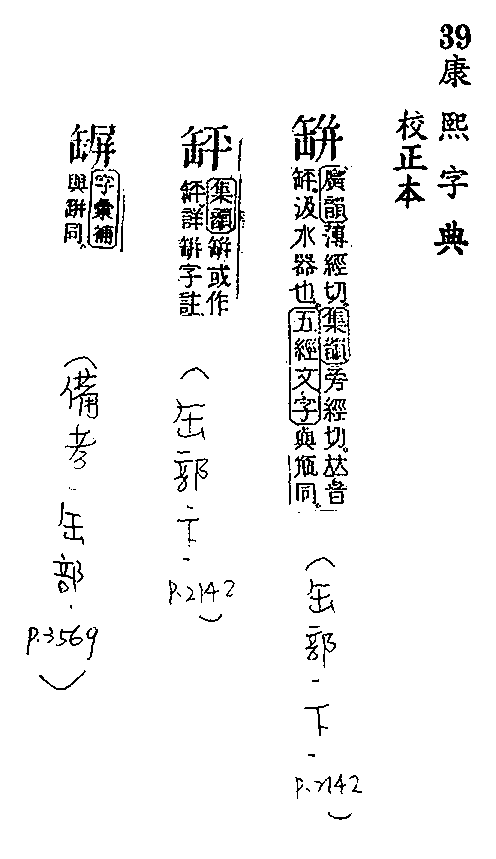 39康熙字典
校正本
缾
廣韻薄經切。集韻旁經切。𠀤音
汲水器也。五經文字與瓶同。
(缶部-下-P.2142)
䍈
集韻缾或作
䍈詳缾字註
(缶部-下-P.2142)
字彙補
與缾同。
(備考·缶部·P.3569)